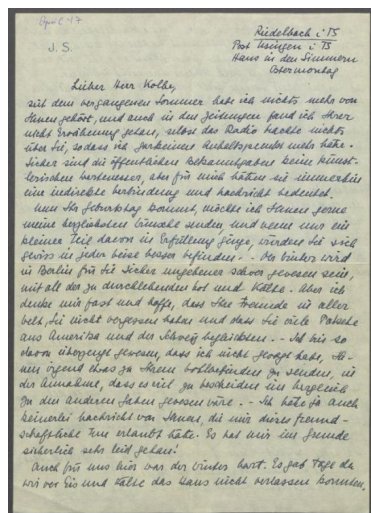 April 47
J. S.
Riedelbach i. TS
Post Usingen i. TS
Haus in den Simmern
Ostermontag
Lieber Herr Kolbe,
seit dem vergangenen Sommer habe ich nichts mehr von
Ihnen gehört, und auch in den Zeitungen fand ich Ihrer
nicht Erwähnung getan, selbst das Radio brachte nichts
über Sie, sodass ich garkeinen Anhaltspunkt mehr hatte.
Sicher sind die öffentlichen Bekanntgaben keine künst-
lerischen, aber für mich hätten sie immerhin
eine indirekte Verbindung und Nachricht bedeutet.
Nun Ihr Geburtstag kommt, möchte ich Ihnen gerne
meine herzlichsten Wünsche senden und wenn nur ein
kleiner Teil davon in Erfüllung ginge, würden Sie sich
gewiss in jeder Weise besser befinden. - Der Winter wird
in Berlin für Sie sicher ungeheuer schwer gewesen sein,
mit all der zu durchlebenden Not und Kälte. Aber ich
denke mir fast und hoffe, dass Ihre Freunde in aller
Welt, Sie nicht vergessen haben und dass Sie viele Pakete
aus Amerika und der Schweiz beglückten. - Ich bin so
davon überzeugt gewesen, dass ich nicht gewagt habe, Ih-
nen irgend etwas zu Ihrem Wohlbefinden zu senden, in
der Annahme, dass es viel zu bescheiden im Vergleich
zu den anderen Gaben gewesen wäre. - Ich hatte ja auch
keinerlei Nachricht von Ihnen, die mir diese freund-
schaftliche Tun erlaubt hätte. Es hat mir im Grunde
sicherlich sehr leid getan!
Auch für uns hier war der Winter hart. Es gab Tage da
wir vor Eis und Kälte das Haus nicht verlassen konnten,